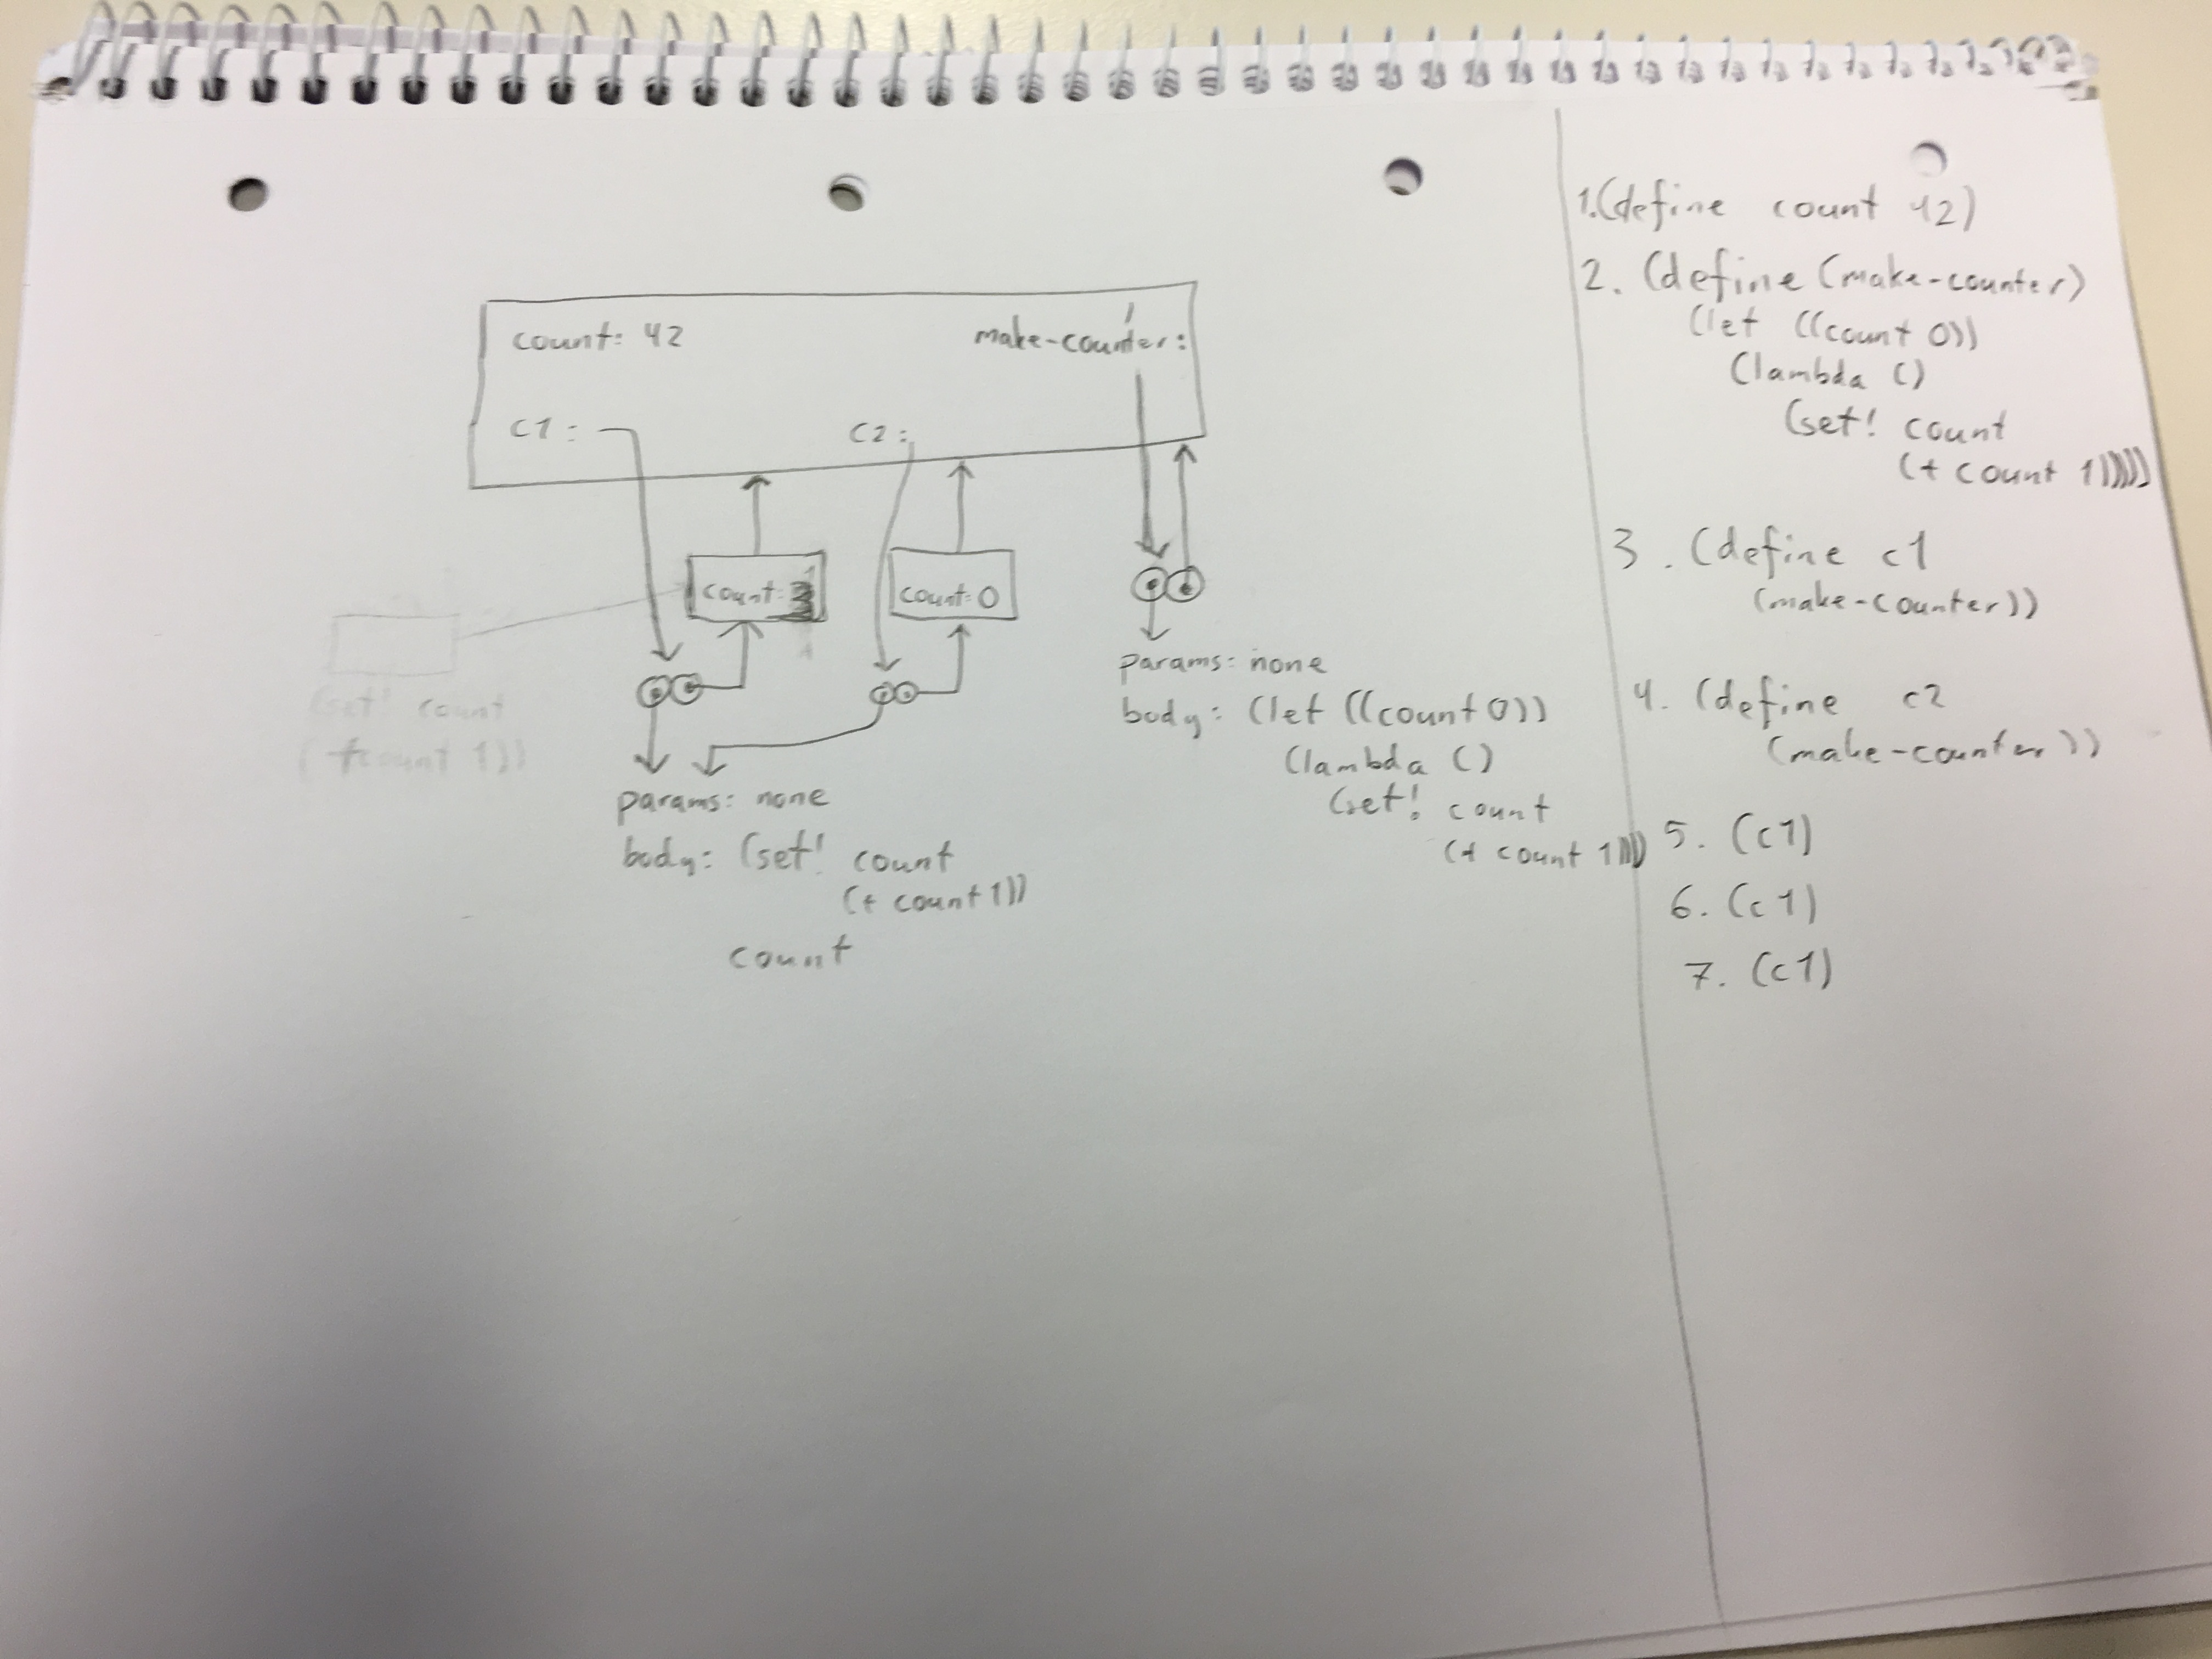 count: 42
make-counter:
c1 :
c2 :
count: 3
count: 0
(set! count
(+ count 1))
params: none
body: (set! count
(+ count 1))
count
params: none
body: (let ((count 0))
(lambda ()
(set! count
(+ count 1))))
1.(define count 42)
2. (define (make-counter)
(let ((count 0))
(lambda ()
(set! count
(+ count 1)))))
3. (define c1
(make-counter))
4. (define c2
(make-counter))
5. (c1)
6. (c1)
7. (c1)